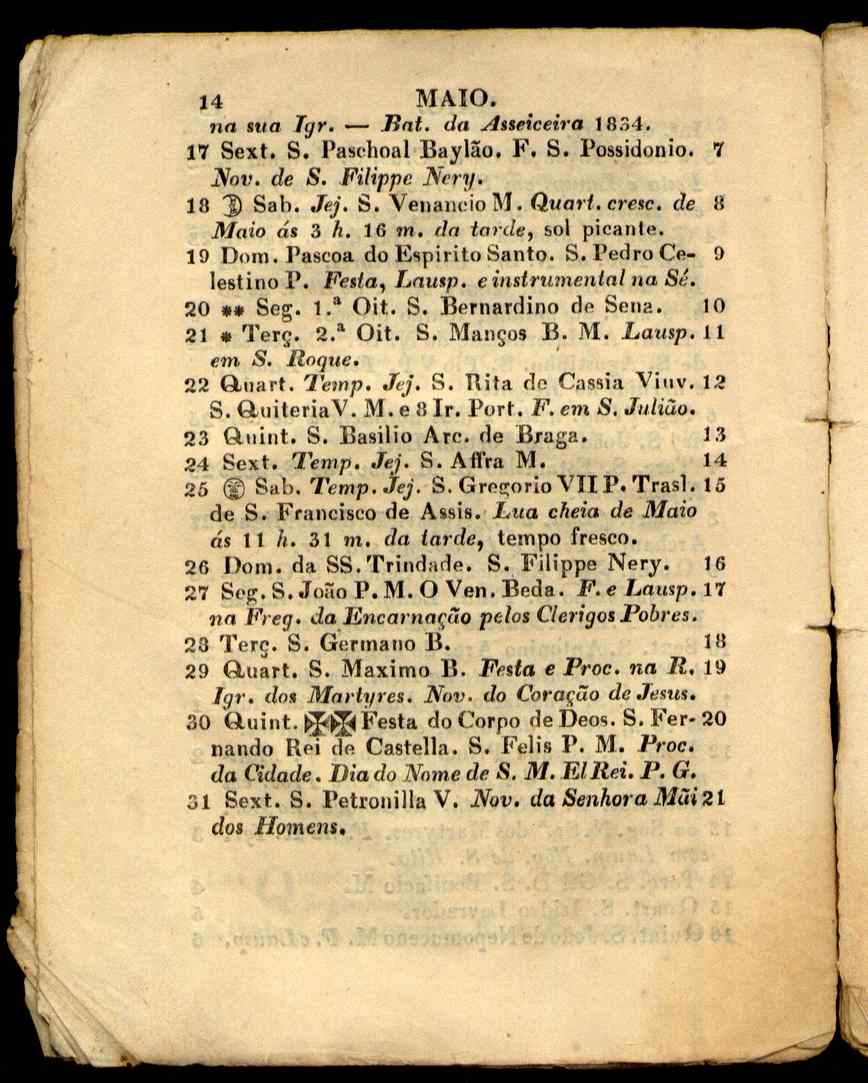 14 MAIO.
na sua Igr. — Bat. da Asseiceira 1834.
17 Sext. S. Paschoal Baylão. F. S. Possidonio. 7
Nov. de S. Filippe Nery.
18 Sab. Jej. S. Venancio M. Quart. cresc. de 8
Maio ás 3 h. 16 m. da tarde, sol picante.
19 Dom. Pascoa do Espirito Santo. S. Pedro Ce- 9
lestino P. Festa, Lausp. e instrumental na Sé.
20 ** Seg. 1.ª Oit. S. Bernardino de Sena. 10
21 * Terç. 2.ª Oit. S. Manços B. M. Lausp. 11
em S. Roque.
22 Quart. Temp. Jej. S. Rita de Cassia Viuv. 12
S. Quiteria V. M. e 8 Ir. Port. F. em S. Julião.
23 Quint. S. Basilio Arc. de Braga. 13
24 Sext. Temp. Jej. S. Affra M. 14
25 Sab. Temp. Jej. S. Gregorio VII P. Trasl. 15
de S. Francisco de Assis. Lua cheia de Maio
ás 11 h. 31 m. da tarde, tempo fresco.
26 Dom. da SS. Trindade. S. Filippe Nery. 16
27 Seg. S. João P. M. O Ven. Beda. F. e Lausp. 17
na Freg. da Encarnação pelos Clerigos Pobres.
28 Terç. S. Germano B. 18
29 Quart. S. Maximo B. Festa e Proc. na R. 19
Igr. dos Martyres. Nov. do Coração de Jesus.
30 Quint. ✠✠ Festa do Corpo de Deos. S. Fer- 20
nando Rei de Castella. S. Felis P. M. Proc.
da Cidade. Dia do Nome de S. M. El Rei. P. G.
31 Sext. S. Petronilla V. Nov. da Senhora Mãi 21
dos Homens.